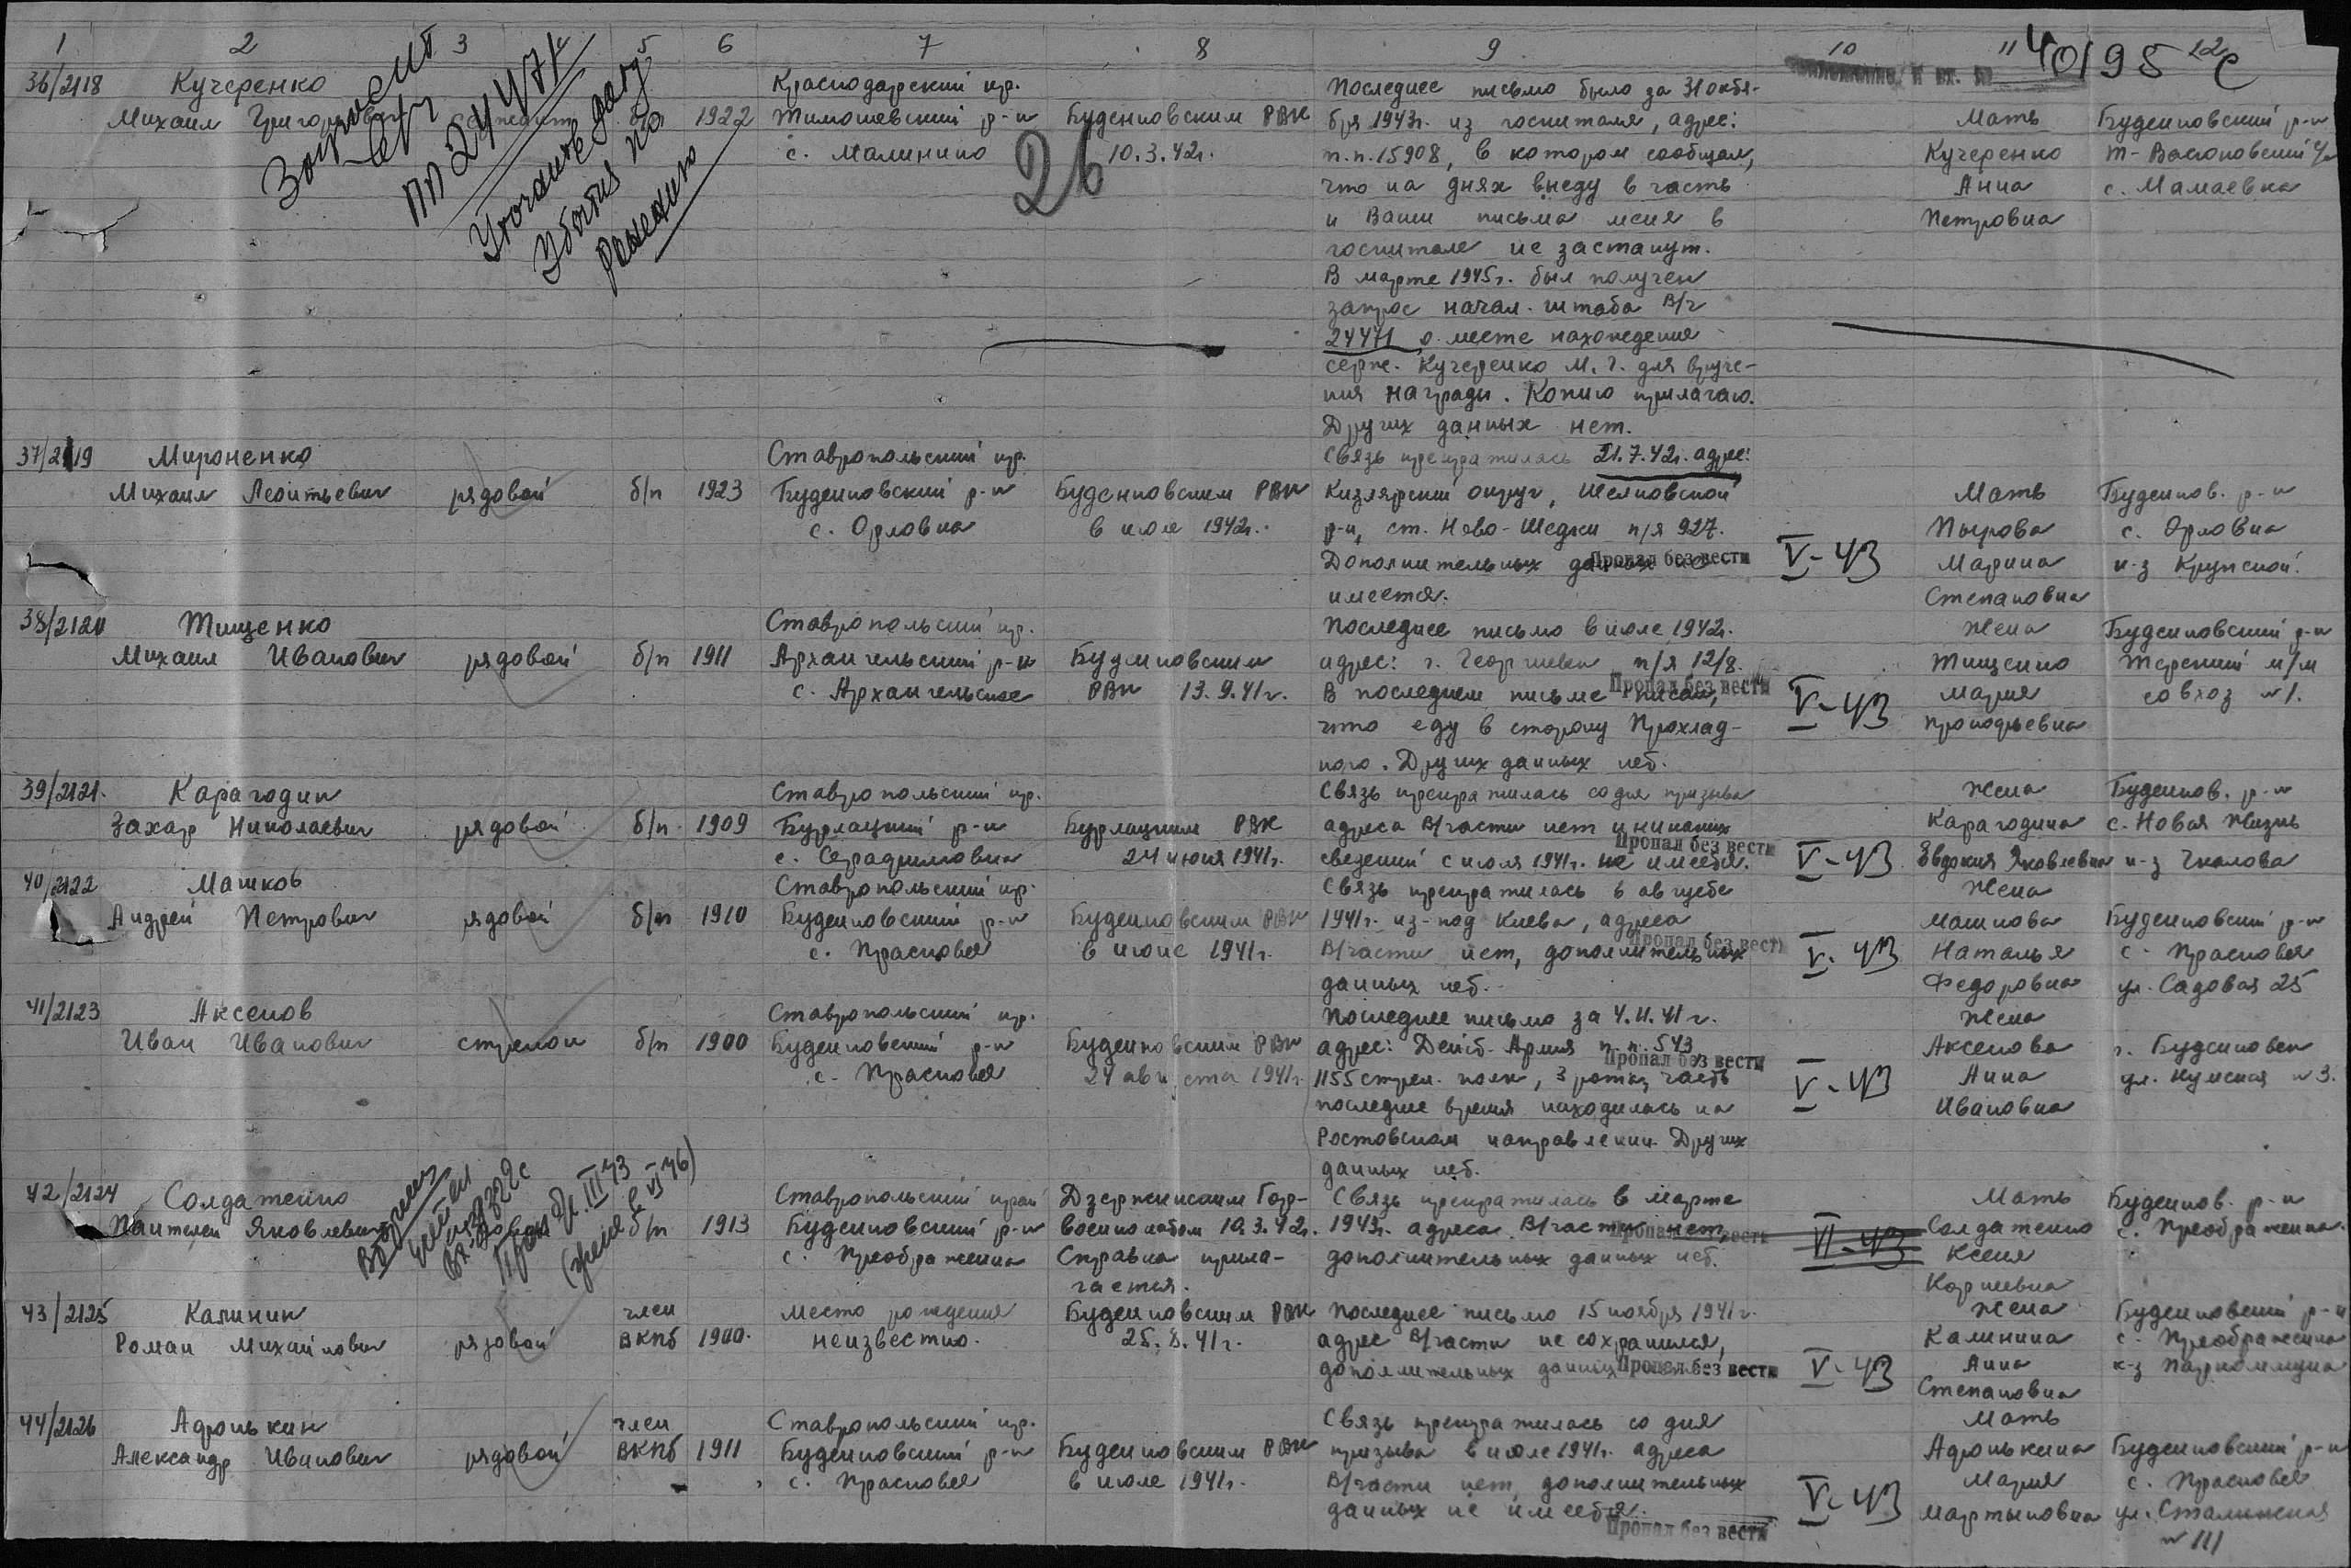 1 2 3 5 6 7 8 9 10 11 12
40195с
36/2118 Кучеренко
Михаил Григорьевич сержант 1922
Краснодарский кр.
Тимошевский р-н
с. Малинино
Буденновским РВК
10.3.42г.
26
Последнее письмо было за 31 октя-
бря 1943г. из госпиталя, адрес:
п.п. 15908, в котором сообщал,
что на днях выеду в часть
и Ваши письма меня в
госпитале не застанут.
В марте 1945г. был получен
запрос начал. штаба В/ч
24471 о месте нахождения
серж. Кучеренко М. Г. для вруче-
ния награды. Копию прилагаю.
Других данных нет.
Мать
Кучеренко
Анна
Петровна
Буденновский р-н
с. Мамаевка
ПП 24471
Уточните дату
убытия
37/2119 Мироненко
Михаил Леонтьевич рядовой б/п 1923
Ставропольский кр.
Буденновский р-н
с. Орловка
Буденновским РВК
в июле 1942г.
Связь прекратилась 21.7.42г. адрес:
Кизлярский округ, Шелковской
р-н, ст. Ново-Щедри п/я 927.
Дополнительных данных не
имеется.
Пропал без вести
V-43
Мать
Пырова
Марина
Степановна
Буденнов. р-н
с. Орловка
к-з Крупской.
38/2120 Тищенко
Михаил Иванович рядовой б/п 1911
Ставропольский кр.
Архангельский р-н
с. Архангельское
Буденновским
РВК 13.9.41г.
Последнее письмо в июле 1942г.
адрес: г. Георгиевск п/я 12/8.
В последнем письме писал,
что еду в сторону Прохлад-
ного. Других данных нет.
Пропал без вести
V-43
Жена
Тищенко
Мария
Прокофьевна
Буденновский р-н
Терский м/м
совхоз №1.
39/2121. Карагодин
Захар Николаевич рядовой б/п 1909
Ставропольский кр.
Бурлацкий р-н
с. Серафимовка
Бурлацким РВК
24 июня 1941г.
Связь прекратилась со дня призыва
адреса В/части нет и никаких
сведений с июля 1941г. не имеется.
Пропал без вести
V-43
Жена
Карагодина
Евдокия Яковлевна
Буденнов. р-н
с. Новая Жизнь
к-з Чкалова
40/2122 Машков
Андрей Петрович рядовой б/п 1910
Ставропольский кр.
Буденновский р-н
с. Прасковея
Буденновским РВК
в июне 1941г.
Связь прекратилась в августе
1941г. из-под Киева, адреса
В/части нет, дополнительных
данных нет.
Пропал без вести
V-43
Жена
Машкова
Наталья
Федоровна
Буденновский р-н
с. Прасковея
ул. Садовая 25
41/2123 Аксенов
Иван Иванович стрелок б/п 1900
Ставропольский кр.
Буденновский р-н
с. Прасковея
Буденновским РВК
24 августа 1941г.
Последнее письмо за 4.11.41г.
адрес: Дейст. Армия п.п. 543
1155 стрел. полк, 3 рота, часть
последнее время находилась на
Ростовском направлении. Других
данных нет.
Пропал без вести
V-43
Жена
Аксенова
Анна
Ивановна
г. Буденновск
ул. Кумская №3.
42/2124 Солдатенко
Пантелей Яковлевич б/п 1913
Ставропольский край
Буденновский р-н
с. Преображенка
Дзержинским Гор-
военкоматом 10.3.42г.
Справка прила-
гается.
Связь прекратилась в марте
1943г. адреса В/части нет,
дополнительных данных нет.
Пропал без вести
VI-43
Мать
Солдатенко
Ксения
Корнеевна
Буденнов. р-н
с. Преображенка
43/2125 Калинин
Роман Михайлович рядовой член
ВКПб 1900.
Место рождения
неизвестно.
Буденновским РВК
25.8.41г.
Последнее письмо 15 ноября 1941г.
адрес В/части не сохранился,
дополнительных данных
Пропал без вести
V-43
Жена
Калинина
Анна
Степановна
Буденновский р-н
с. Преображенка
к-з Парижкоммуна
44/2126 Адонькин
Александр Иванович рядовой член
ВКПб 1911
Ставропольский кр.
Буденновский р-н
с. Прасковея
Буденновским РВК
в июле 1941г.
Связь прекратилась со дня
призыва в июле 1941г. адреса
В/части нет, дополнительных
данных не имеется.
Пропал без вести
V-43
Мать
Адонькина
Мария
Мартыновна
Буденновский р-н
с. Прасковея
ул. Сталинская
№ 111